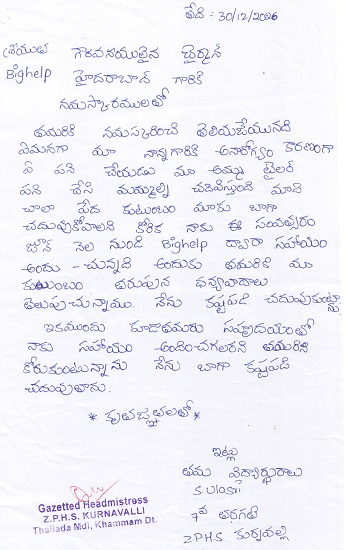 తేది : 30/12/2006
శ్రీయుత గౌరవనీయులైన చైర్మన్
Bighelp హైదరాబాద్ గారికి
నమస్కారములతో
తమరికి నమస్కరించి తెలియచేయునది
ఏమనగా మా నాన్నగారికి అనారోగ్యం కారణంగా
ఏ పని చేయడు మా అమ్మ టైలర్
పని చేసి మమ్మల్ని చదివిస్తుంది మాది
చాలా పేద కుటుంబం మాకు బాగా
చదువుకోవాలని కోరిక నాకు ఈ సంవత్సరం
జూన్ నెల నుండి Bighelp ద్వారా సహాయం
అందు - చున్నది అందుకు తమరికి మా
కుటుంబం తరుపున ధన్యవాదాలు
తెలుపుచున్నాము. నేను కష్టపడి చదువుకుంట్నాను
ఇకముందు కూడా తమరు సహృదయంతో
నాకు సహాయం అందించగలరని తమరిని
కోరుకుంటున్నాను నేను బాగా కష్టపడి
చదువుతాను.
* కృతజ్ఞతలతో *
ఇట్లు
తమ విద్యార్థురాలు
7వ తరగతి
Z.P.H.S. కుర్నవల్లి
Gazetted Headmistress
Z.P.H.S. KURNAVALLI
Thallada Mdl, Khammam Dt.